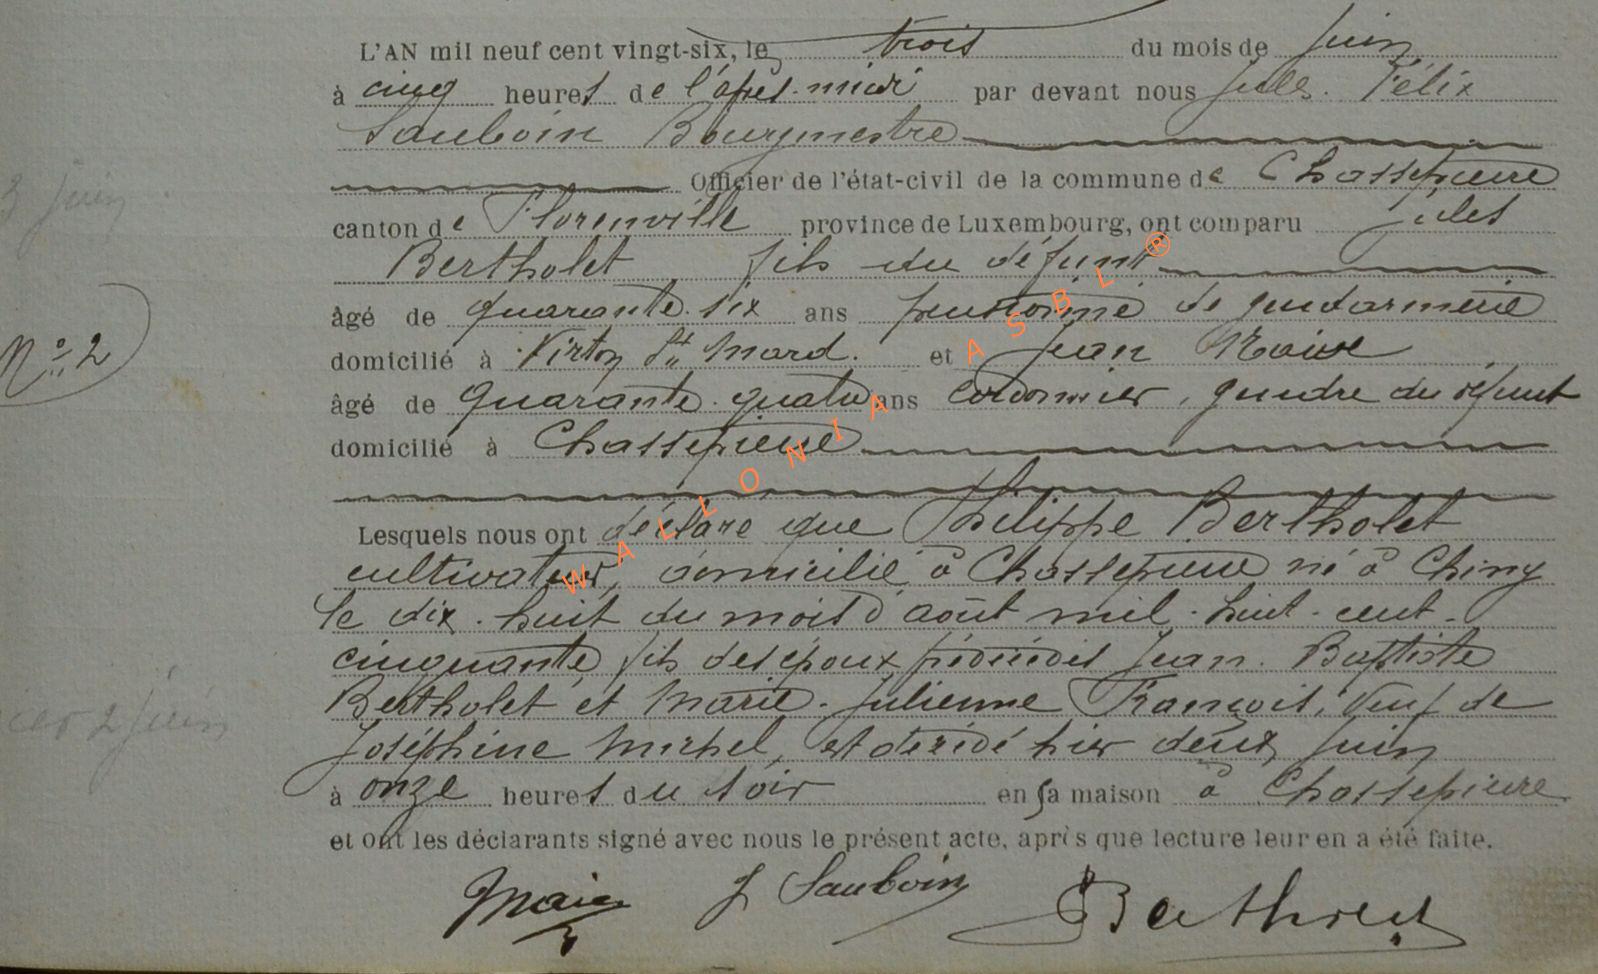 L'AN mil neuf cent vingt-six, le trois du mois de Juin
à cinq heures de l'après-midi par devant nous Jules. Félix
Sauboin Bourgmestre
Officier de l'état-civil de la commune de Chassepierre
3 Juin
canton de Florenville province de Luxembourg, ont comparu Jules
Bertholet fils du défunt
âgé de quarante-six ans pensionné de gendarmerie
N° 2
domicilié à Virton St Mard. et Jean
âgé de quarante-quatre ans cordonnier, gendre du défunt
domicilié à Chassepierre
Lesquels nous ont déclaré que Philippe Bertholet
cultivateur, domicilié à Chassepierre né à Chiny
le dix-huit du mois d'août mil-huit-cent-
cinquante, fils des époux prédécédés Jean-Baptiste
Bertholet et Marie-Julienne François, veuf de
2 Juin
Joséphine Michel, est décédé hier deux Juin
à onze heures du soir en sa maison à Chassepierre
et ont les déclarants signé avec nous le présent acte, après que lecture leur en a été faite.
J Sauboin
WALLONIA ASBL ®